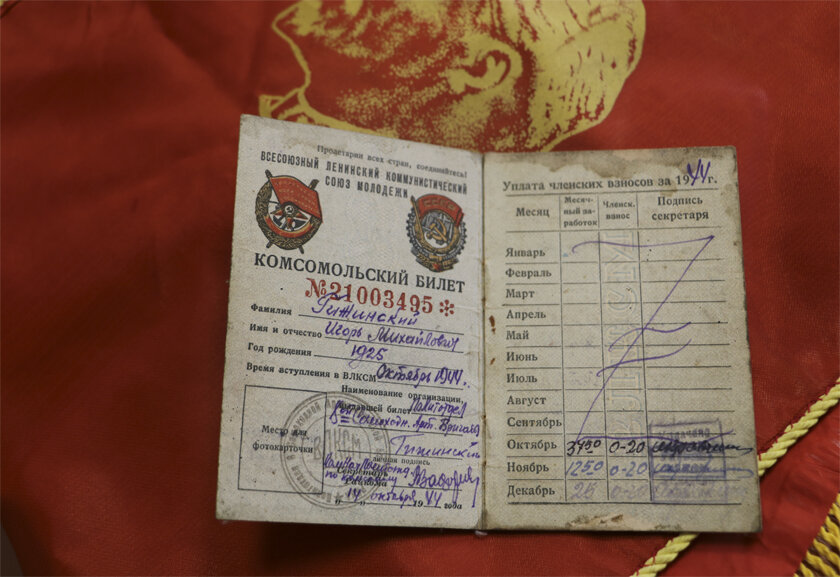 Пролетарии всех стран, соединяйтесь!
ВСЕСОЮЗНЫЙ ЛЕНИНСКИЙ КОММУНИСТИЧЕСКИЙ
СОЮЗ МОЛОДЕЖИ
КОМСОМОЛЬСКИЙ БИЛЕТ
№21003495*
Фамилия Гижинский
Имя и отчество Игорь Михайлович
Год рождения 1925
Время вступления в ВЛКСМ Октябрь 1944г.
Наименование организации,
выдавшей билет Политотдел
Арт. Бригады
Место для
фотокарточки
Гижинский
личная подпись
Секретарь
по
14 октября 1944 года
Уплата членских взносов за 1944 г.
Месяц Месячный заработок Членск. взнос Подпись секретаря
Январь
Февраль
Март
Апрель
Май
Июнь
Июль
Август
Сентябрь
Октябрь 0-20
Ноябрь 1250 0-20
Декабрь 25 0-20